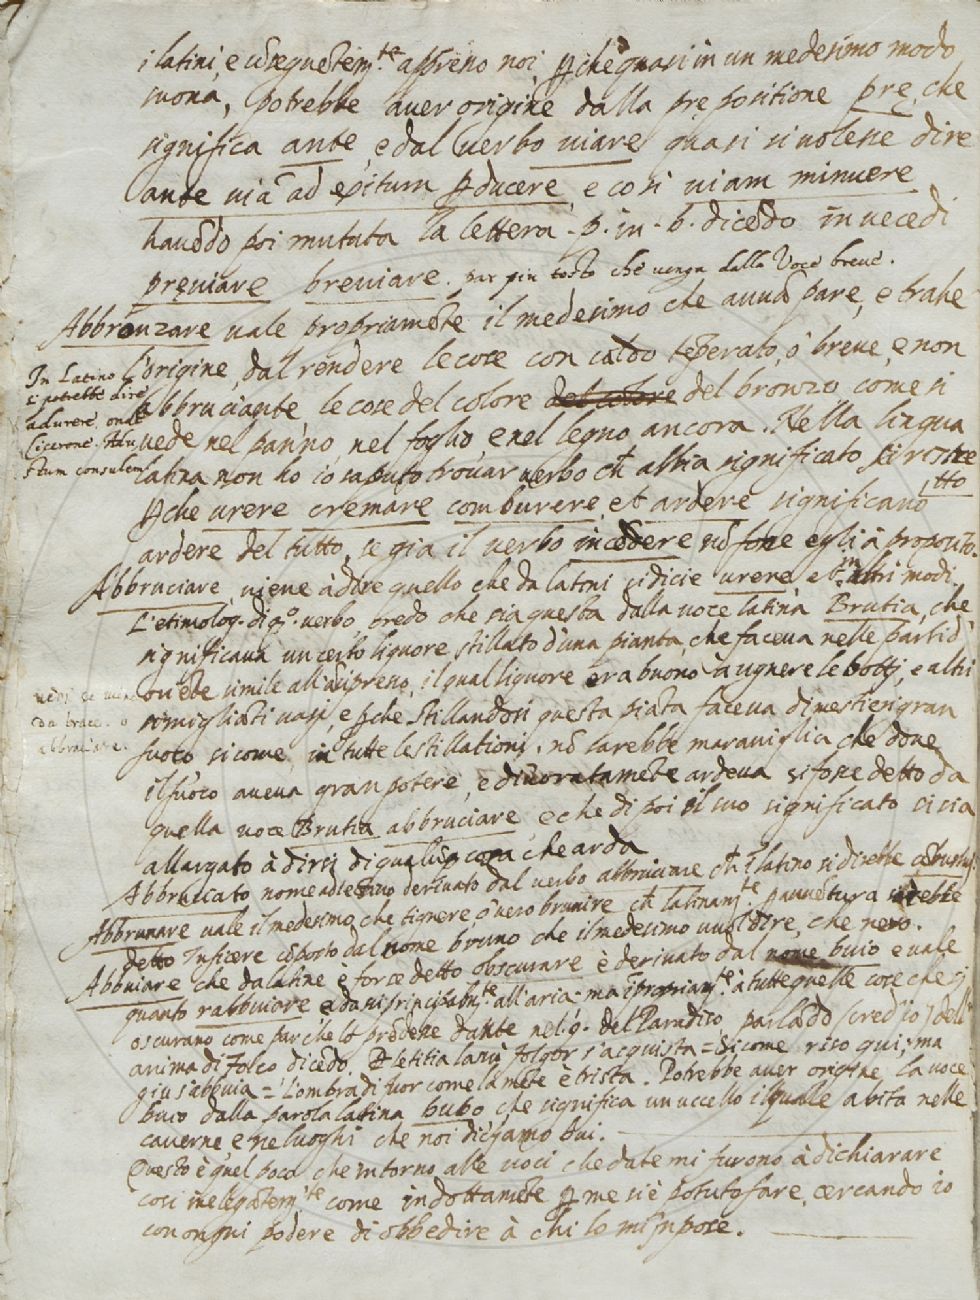 i latini, e cõseguẽtem.te appreno noi, p che quasi in un medesimo modo
suona, potrebbe aver origine dalla prepositione pre, che
significa ante, e dal verbo viare quasi si volesse dire
ante viã ad exitum pducere, e cosi viam minuere
havẽdo poi mutata la lettera .p. in .b. dicẽdo in vece di
previare breviare. par piu tosto che venga dalla voce breve.
Abbronzare vale propriamẽte il medesimo che avvãpare, e trahe
l'origine, dal rendere le cose con caldo tẽperato, ò breve, e non
abbruciante le cose del colore del colore del bronzo come si
vede nel panno, nel foglio, e nel legno ancora. Nella lingua
latina non ho io saputo trovar verbo ch' abbia significato si ristretto
p che urere cremare comburere, et ardere significano
ardere del tutto, se gia il verbo incẽdere nõ fosse egli à proposito.
In Latino
si potrebbe dire
adurere, onde
Cicerone. Adu
stum consulem
Abbruciare, viene à dire quello che da latini si dicie urere, et in altri modi.
L'etimolog. di q.o verbo, credo che sia questa dalla voce latina Brutia, che
significava un certo liquore, stillato d'una pianta, che faceva nelle parti di
ovẽte simile all'acipreno, il qual liquore era buono à ugnere le botti, e altri
somigliãti vasi, e p che stillandosi questa piãta faceva di mestieri gran
fuoco si come in tutte le stillationi. nõ sarebbe maraviglia che dove
il fuoco aveva gran potere, e divoratamẽte ardeva si fosse detto da
quella voce Brutia abbruciare, e che di poi il suo significato si sia
allargato à dirsi di qualũq cosa che arda
da brace. o
abbraciare.
Abbruscato nome adiettivo derivato dal verbo abbruciare ch' i latino si direbbe cõbustus
Abbrunare vale il medesimo, che tignere ò vero brunire ch' latinam.te p avvẽtura sarebbe
detto Inficere cõposto dal nome bruno che il medesimo vuol dire, che nero.
Abbuiare che da latini è forse detto obscurare è derivato dal nome buio e vale
quanto rabbuiare e da noi principalm.te all'aria. ma ĩpropriam.te à tutte quelle cose che si
oscurano come p che lo prẽdere dante nel 9. del Paradiso, parlãdo (cred'io) dell'
anima di Folco dicẽdo. P letitia lasu folgor s'acquista = Sicome riso qui; ma
giu s'abbuia = L'ombra di fuor come la mẽte è trista. Potrebbe aver origine la voce
buio dalla parola latina bubo che significa un uccello il quale abita nelle
caverne, e ne luoghi che noi diciamo bui.
Questo è quel poco che intorno alle voci che date mi furono à dichiarare
cosi inelegãtem.te come indottamẽte p me si è potuto fare, cercando io
con ongni podere di obbedire à chi lo m'impose.